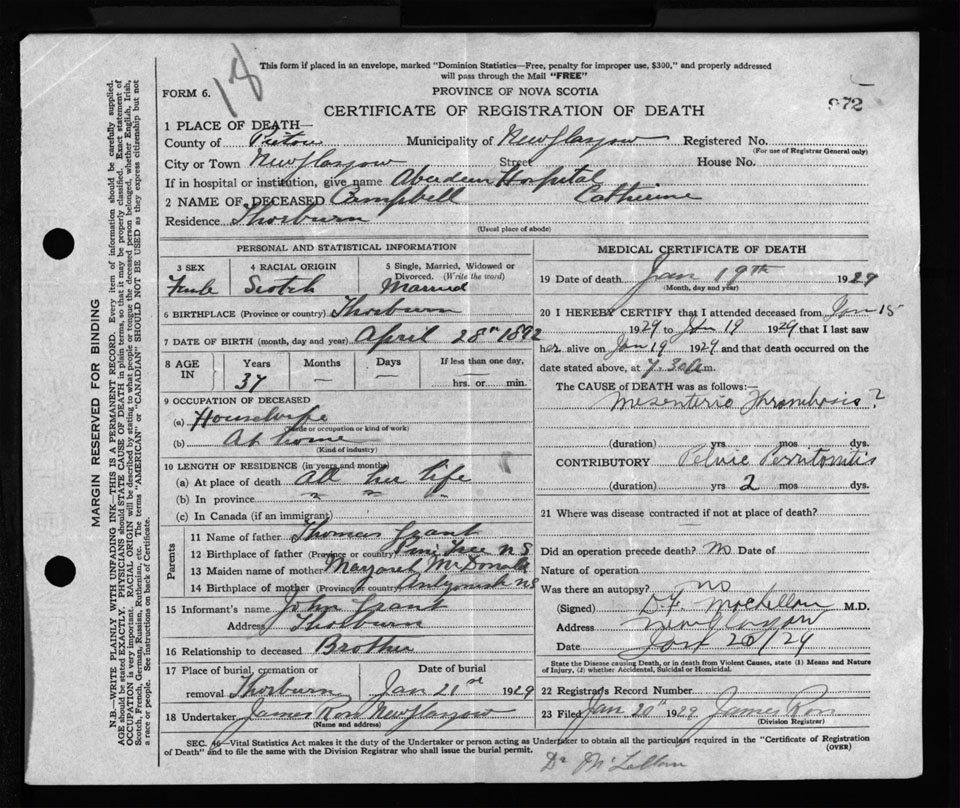 18
This form if placed in an envelope, marked "Dominion Statistics—Free, penalty for improper use, $300," and properly addressed
will pass through the Mail "FREE"
FORM 6.
PROVINCE OF NOVA SCOTIA
872
CERTIFICATE OF REGISTRATION OF DEATH
1 PLACE OF DEATH—
County of Pictou Municipality of New Glasgow Registered No.
(For use of Registrar General only)
City or Town New Glasgow Street House No.
If in hospital or institution, give name Aberdeen Hospital
2 NAME OF DECEASED Campbell Catherine
Residence Thorburn
(Usual place of abode)
PERSONAL AND STATISTICAL INFORMATION
3 SEX 4 RACIAL ORIGIN 5 Single, Married, Widowed or
Divorced. (Write the word)
Female Scotch Married
6 BIRTHPLACE (Province or country) Thorburn
7 DATE OF BIRTH (month, day and year) April 28th 1892
8 AGE IN Years Months Days If less than one day,
37 — — hrs. or min.
9 OCCUPATION OF DECEASED
(a) Housewife
(Trade or occupation or kind of work)
(b) At home
(Kind of industry)
10 LENGTH OF RESIDENCE (in years and months)
(a) At place of death All her life
(b) In province " " "
(c) In Canada (if an immigrant)
Parents
11 Name of father Thomas Grant
12 Birthplace of father (Province or country) Pine Tree N S
13 Maiden name of mother Margaret McDonald
14 Birthplace of mother (Province or country) Antigonish NS
15 Informant's name John Grant
Address Thorburn
16 Relationship to deceased Brother
17 Place of burial, cremation or Date of burial
removal Thorburn Jan 21st 1929
18 Undertaker James Ross New Glasgow
(Name and address)
MEDICAL CERTIFICATE OF DEATH
19 Date of death Jan 19th 1929
(Month, day and year)
20 I HEREBY CERTIFY that I attended deceased from Jan 15
1929 to Jan 19 1929 that I last saw
her alive on Jan 19 1929 and that death occurred on
date stated above, at 7.30 a.m.
The CAUSE OF DEATH was as follows:—
Mesenteric Thrombosis?
(duration) yrs mos dys.
CONTRIBUTORY Pelvic Peritonitis
(duration) yrs 2 mos dys.
21 Where was disease contracted if not at place of death?
Did an operation precede death? No Date of
Nature of operation
Was there an autopsy? no
(Signed) MacLellan M.D.
Address New Glasgow
Date Jan 20/29
State the Disease causing Death, or in death from Violent Causes, state (1) Means and Nature
of Injury, (2) whether Accidental, Suicidal or Homicidal.
22 Registrar's Record Number
23 Filed Jan 20th 1929 James Ross
(Division Registrar)
SEC. 46—Vital Statistics Act makes it the duty of the Undertaker or person acting as Undertaker to obtain all the particulars required in the "Certificate of Registration
of Death" and to file the same with the Division Registrar who shall issue the burial permit.
(OVER)
Dr McLellan
MARGIN RESERVED FOR BINDING
N.B.—WRITE PLAINLY WITH UNFADING INK—THIS IS A PERMANENT RECORD. Every item of information should be carefully supplied.
AGE should be stated EXACTLY. PHYSICIANS should STATE CAUSE OF DEATH in plain terms, so that it may be properly classified. Exact statement of
OCCUPATION is very important. RACIAL ORIGIN will be described by stating to what people or tongue the deceased person belonged, whether English, Irish,
Scotch, French, German, Russian, Ruthenian, etc. The terms "AMERICAN" or "CANADIAN" SHOULD NOT BE USED as they express citizenship but not
a race or people. See instructions on back of Certificate.